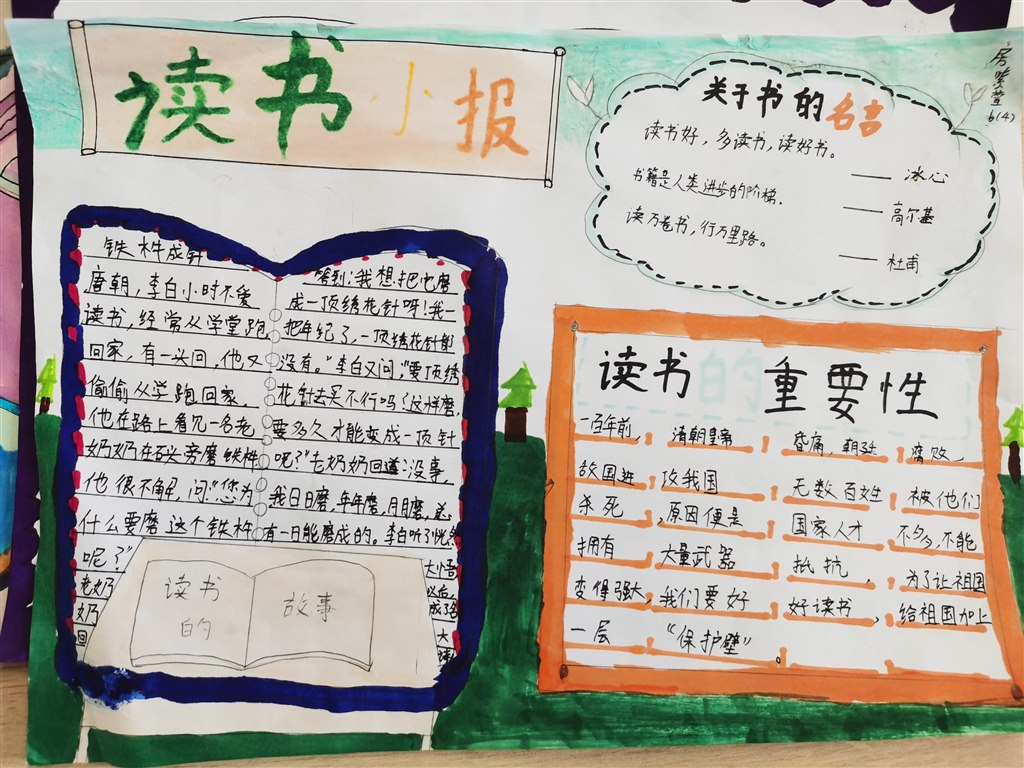 读书小报
关于书的名言
读书好，多读书，读好书。
—— 冰心
书籍是人类进步的阶梯.
—— 高尔基
读万卷书，行万里路。
—— 杜甫
6(4)
铁杵成针
唐朝，李白小时不爱
读书，经常从学堂跑
回家，有一次回，他又
偷偷从学跑回家.
他在路上看见一名老
奶奶在石头旁磨铁杵
他很不解，问:"您为
什么要磨这个铁杵
呢？"
老奶
奶
回
答到:我想把它磨
成一顶绣花针呀！我一
把年纪了，一顶绣花针都
没有。"李白又问:"要顶绣
花针去买不行吗？这样磨，
要多久才能变成一顶针
呢？"老奶奶回道:没事，
我日日磨，年年磨，月月磨，总
有一日能磨成的。李白听了恍然
大悟
以后
大
读书的
故事
读书的重要性
一百年前， 清朝皇帝 昏庸，朝廷 腐败，
敌国进 攻我国 无数百姓 被他们
杀死 ,原因便是 国家人才 不多,不能
拥有 大量武器 抵抗， 为了让祖国
变得强大, 我们要好 好读书， 给祖国加上
一层 "保护壁"。